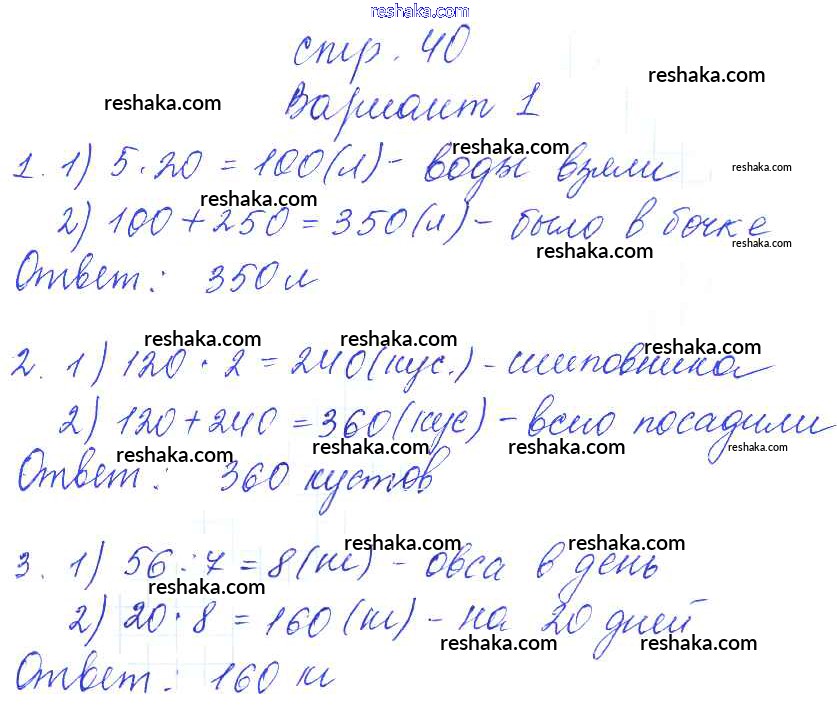 reshaka.com
стр. 40
reshaka.com reshaka.com
Вариант 1
reshaka.com
1. 1) 5·20 = 100(л) - воды взяли reshaka.com
reshaka.com
2) 100 + 250 = 350(л) - было в бочке
reshaka.com reshaka.com
Ответ: 350 л
reshaka.com reshaka.com reshaka.com
2. 1) 120 · 2 = 240(кус.) - шиповника
2) 120 + 240 = 360(кус) - всего посадили
reshaka.com reshaka.com reshaka.com reshaka.com
Ответ: 360 кустов
reshaka.com reshaka.com
3. 1) 56 : 7 = 8(кг) - овса в день
reshaka.com
2) 20 · 8 = 160(кг) - на 20 дней
reshaka.com reshaka.com
Ответ: 160 кг
reshaka.com